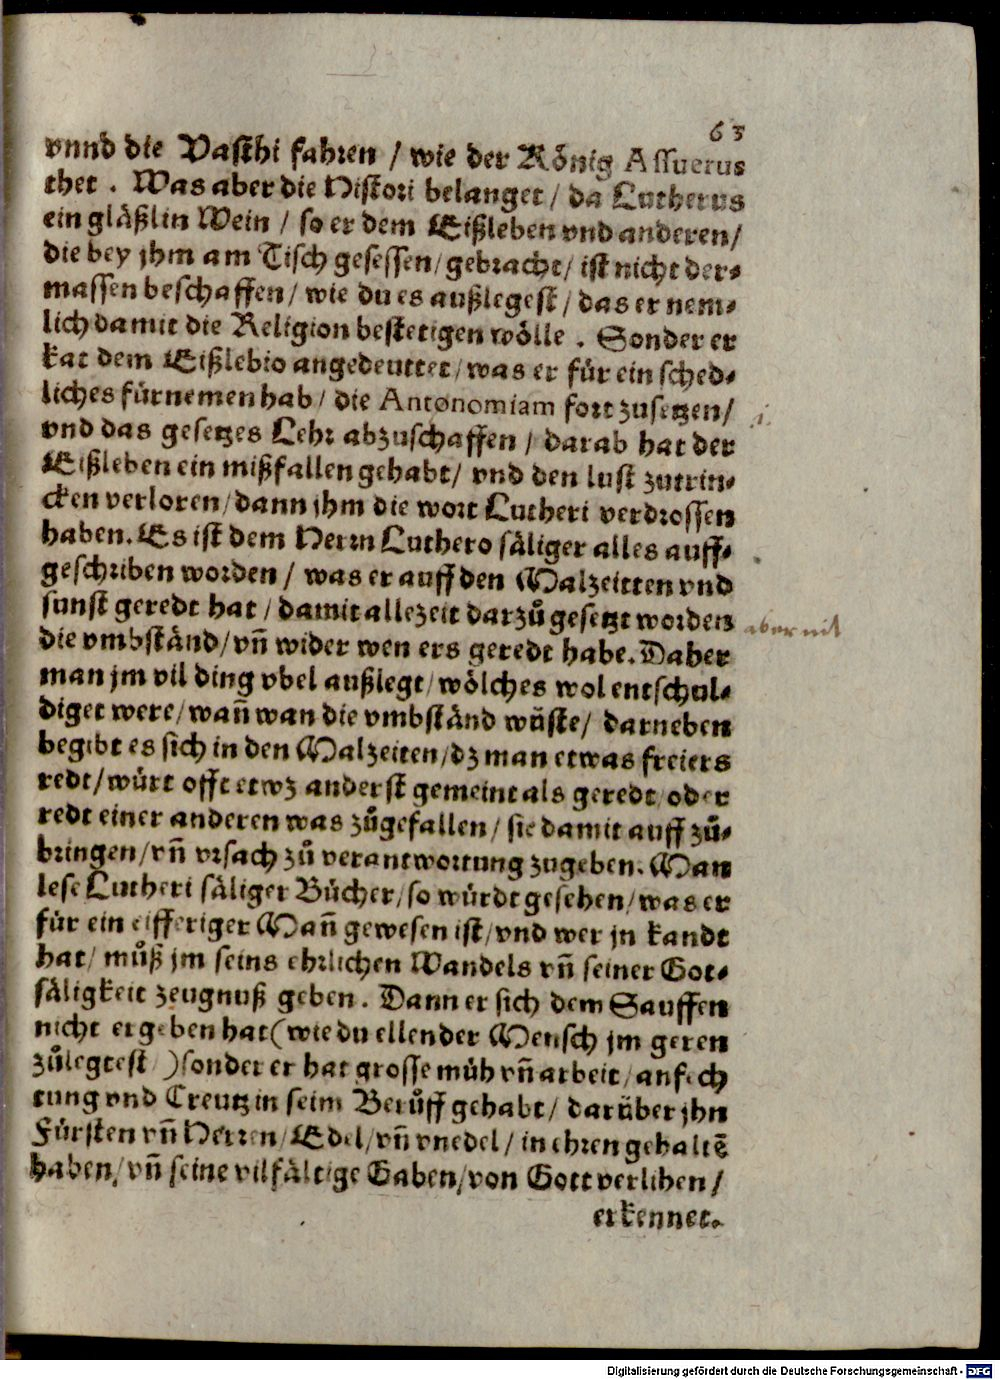 63
vnnd die Vasthi fahren / wie der König Assuerus
thet . Was aber die Histori belanget / da Lutherus
ein gläßlin Wein / so er dem Eißleben vnd anderen /
die bey jhm am Tisch gesessen / gebracht / ist nicht der⸗
massen beschaffen / wie du es außlegest / das er nem⸗
lich damit die Religion bestetigen wölle . Sonder er
hat dem Eißlebio angedeuttet / was er für ein sched⸗
liches fürnemen hab / die Antonomiam fort zusetzen /
vnd das gesetzes Lehr abzuschaffen / darab hat der
Eißleben ein mißfallen gehabt / vnd den lust zutrin⸗
cken verloren / dann jhm die wort Lutheri verdrossen
haben. Es ist dem Herrn Luthero säliger alles auff⸗
geschriben worden / was er auff den Malzeitten vnd
sunst geredt hat / damit allezeit darzů gesetzt worden
aber nit
die vmbständ / vñ wider wen ers geredt habe. Daher
man jm vil ding vbel außlegt / wölches wol entschul⸗
diget were / wañ wan die vmbständ wüste / darneben
begibt es sich in den Malzeiten / dz man etwas freiers
redt / würt offt etwz anderst gemeint als geredt / oder
redt einer anderen was zůgefallen / sie damit auff zů⸗
bringen / vñ vrsach zů verantwortung zugeben. Man
lese Lutheri säliger Bücher / so würdt gesehen / was er
für ein eifferiger Mañ gewesen ist / vnd wer jn kandt
hat / můß jm seins ehrlichen Wandels vñ seiner Got⸗
säligkeit zeugnuß geben . Dann er sich dem Sauffen
nicht ergeben hat ( wie du ellender Mensch jm geren
zůlegtest ) sonder er hat grosse müh vñ arbeit / anfech
tung vnd Creutz in seim Berůff gehabt / darüber jhn
Fürsten vñ Herren / Edel / vñ vnedel / in ehren gehaltẽ
haben / vñ seine vilfältige Gaben / von Gott verlihen /
erkennet.
Digitalisierung gefördert durch die Deutsche Forschungsgemeinschaft - DFG